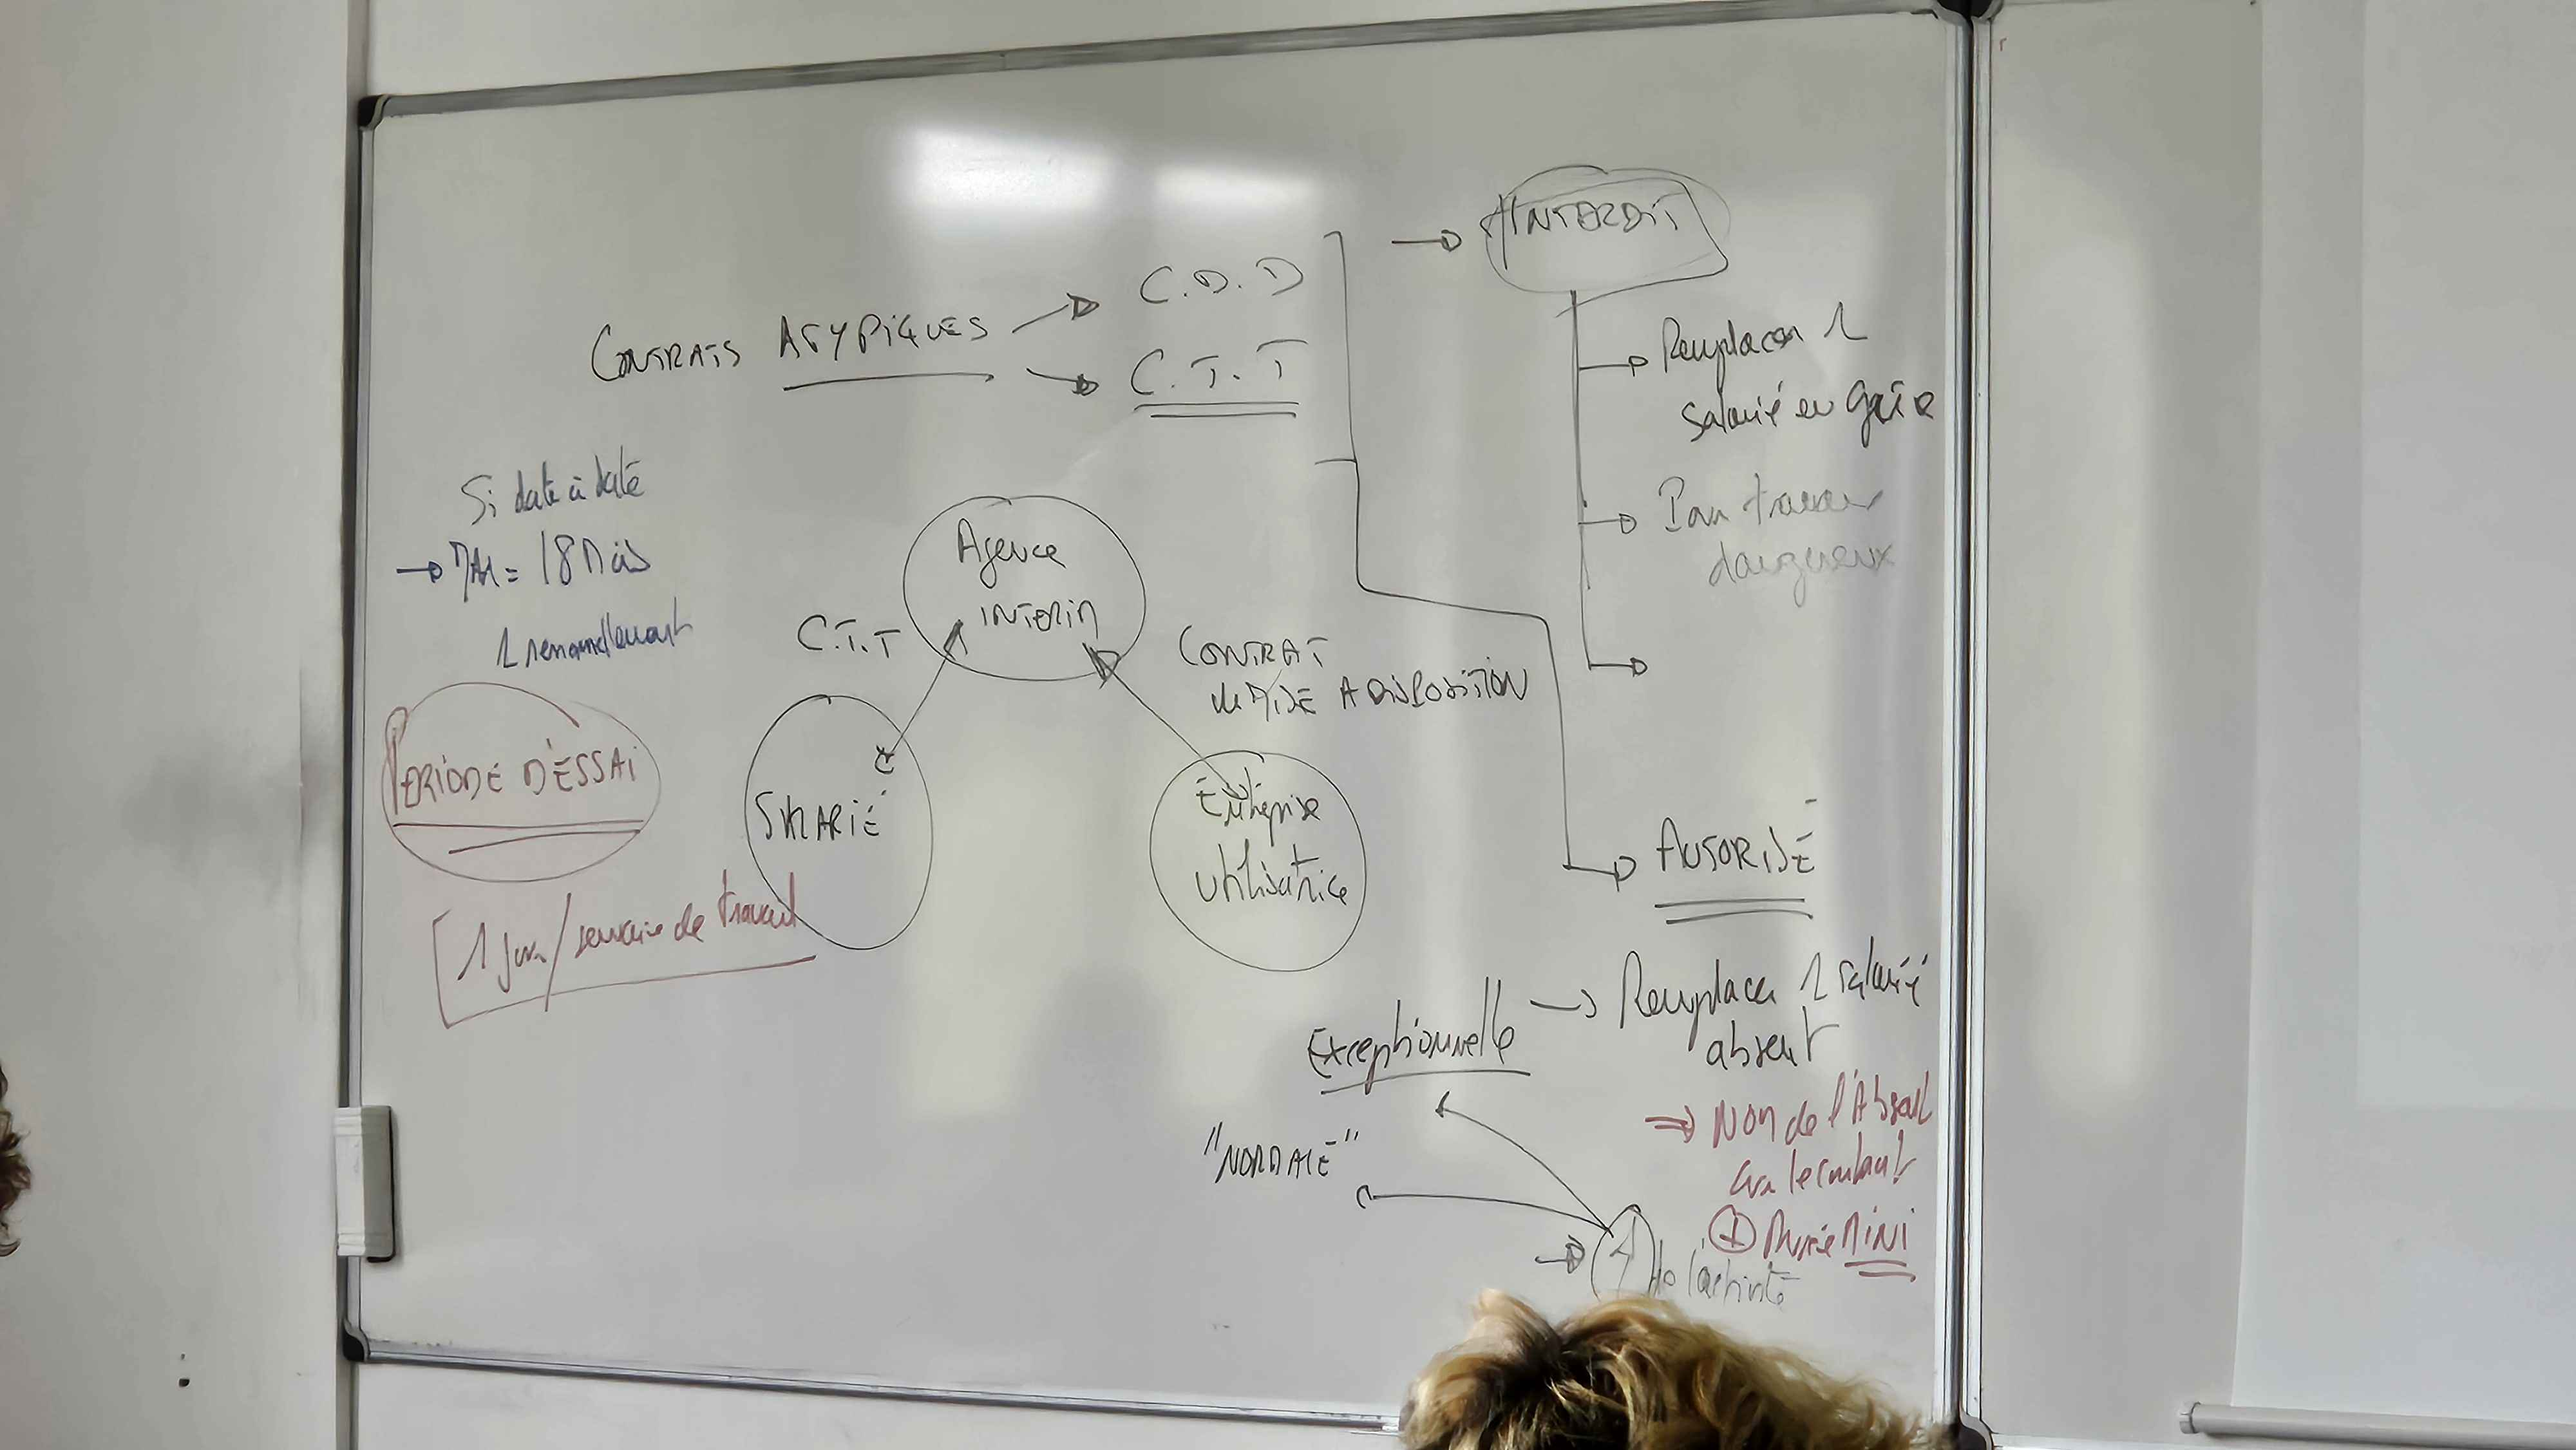 CONTRATS ATYPIQUES
C.D.D
C.T.T
INTERDIT
Remplacer 1
salarié en grève
Pour travaux
dangereux
Si date à date
MAX = 18 Mois
1 renouvellement
PERIODE D'ESSAI
1 jour/semaine de travail
Agence
INTERIM
C.T.T
SALARIÉ
CONTRAT
de MISE A DISPOSITION
Entreprise
utilisatrice
AUTORISÉ
Remplacer 1 salarié
absent
Nom de l'Absent
sur le contrat
+ Durée MINI
de l'activité
Exceptionnelle
"NORMALE"